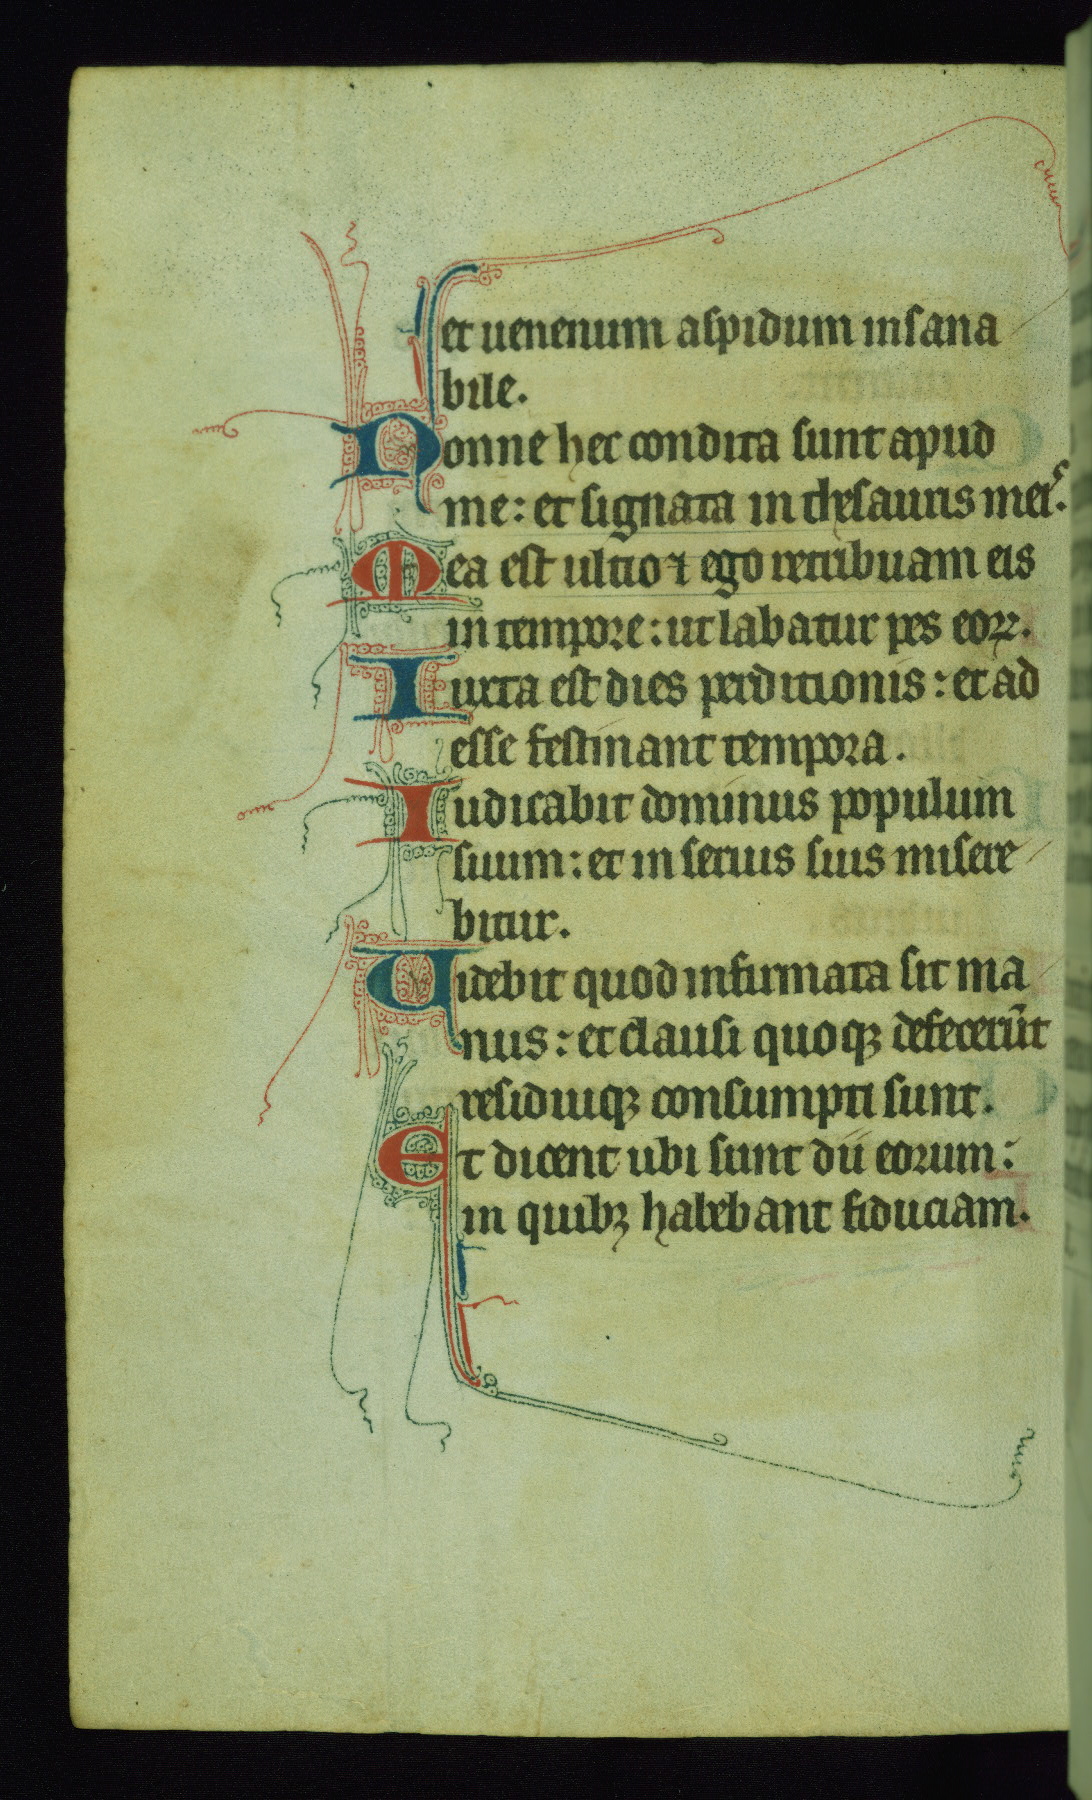 et uenenum aspidum insana
bile.
Nonne hec condita sunt apud
me: et signata in thesauris meis.
Mea est ultio ⁊ ego retribuam eis
in tempore: ut labatur pes eoꝝ.
Iuxta est dies perditionis: et ad
esse festinant tempora.
Iudicabit dominus populum
suum: et in seruis suis misere
bitur.
Uidebit quod infirmata sit ma
nus: et clausi quoqꝫ defecerūt
residuiqꝫ consumpti sunt.
Et dicent ubi sunt dii eorum:
in quibꝫ habebant fiduciam.